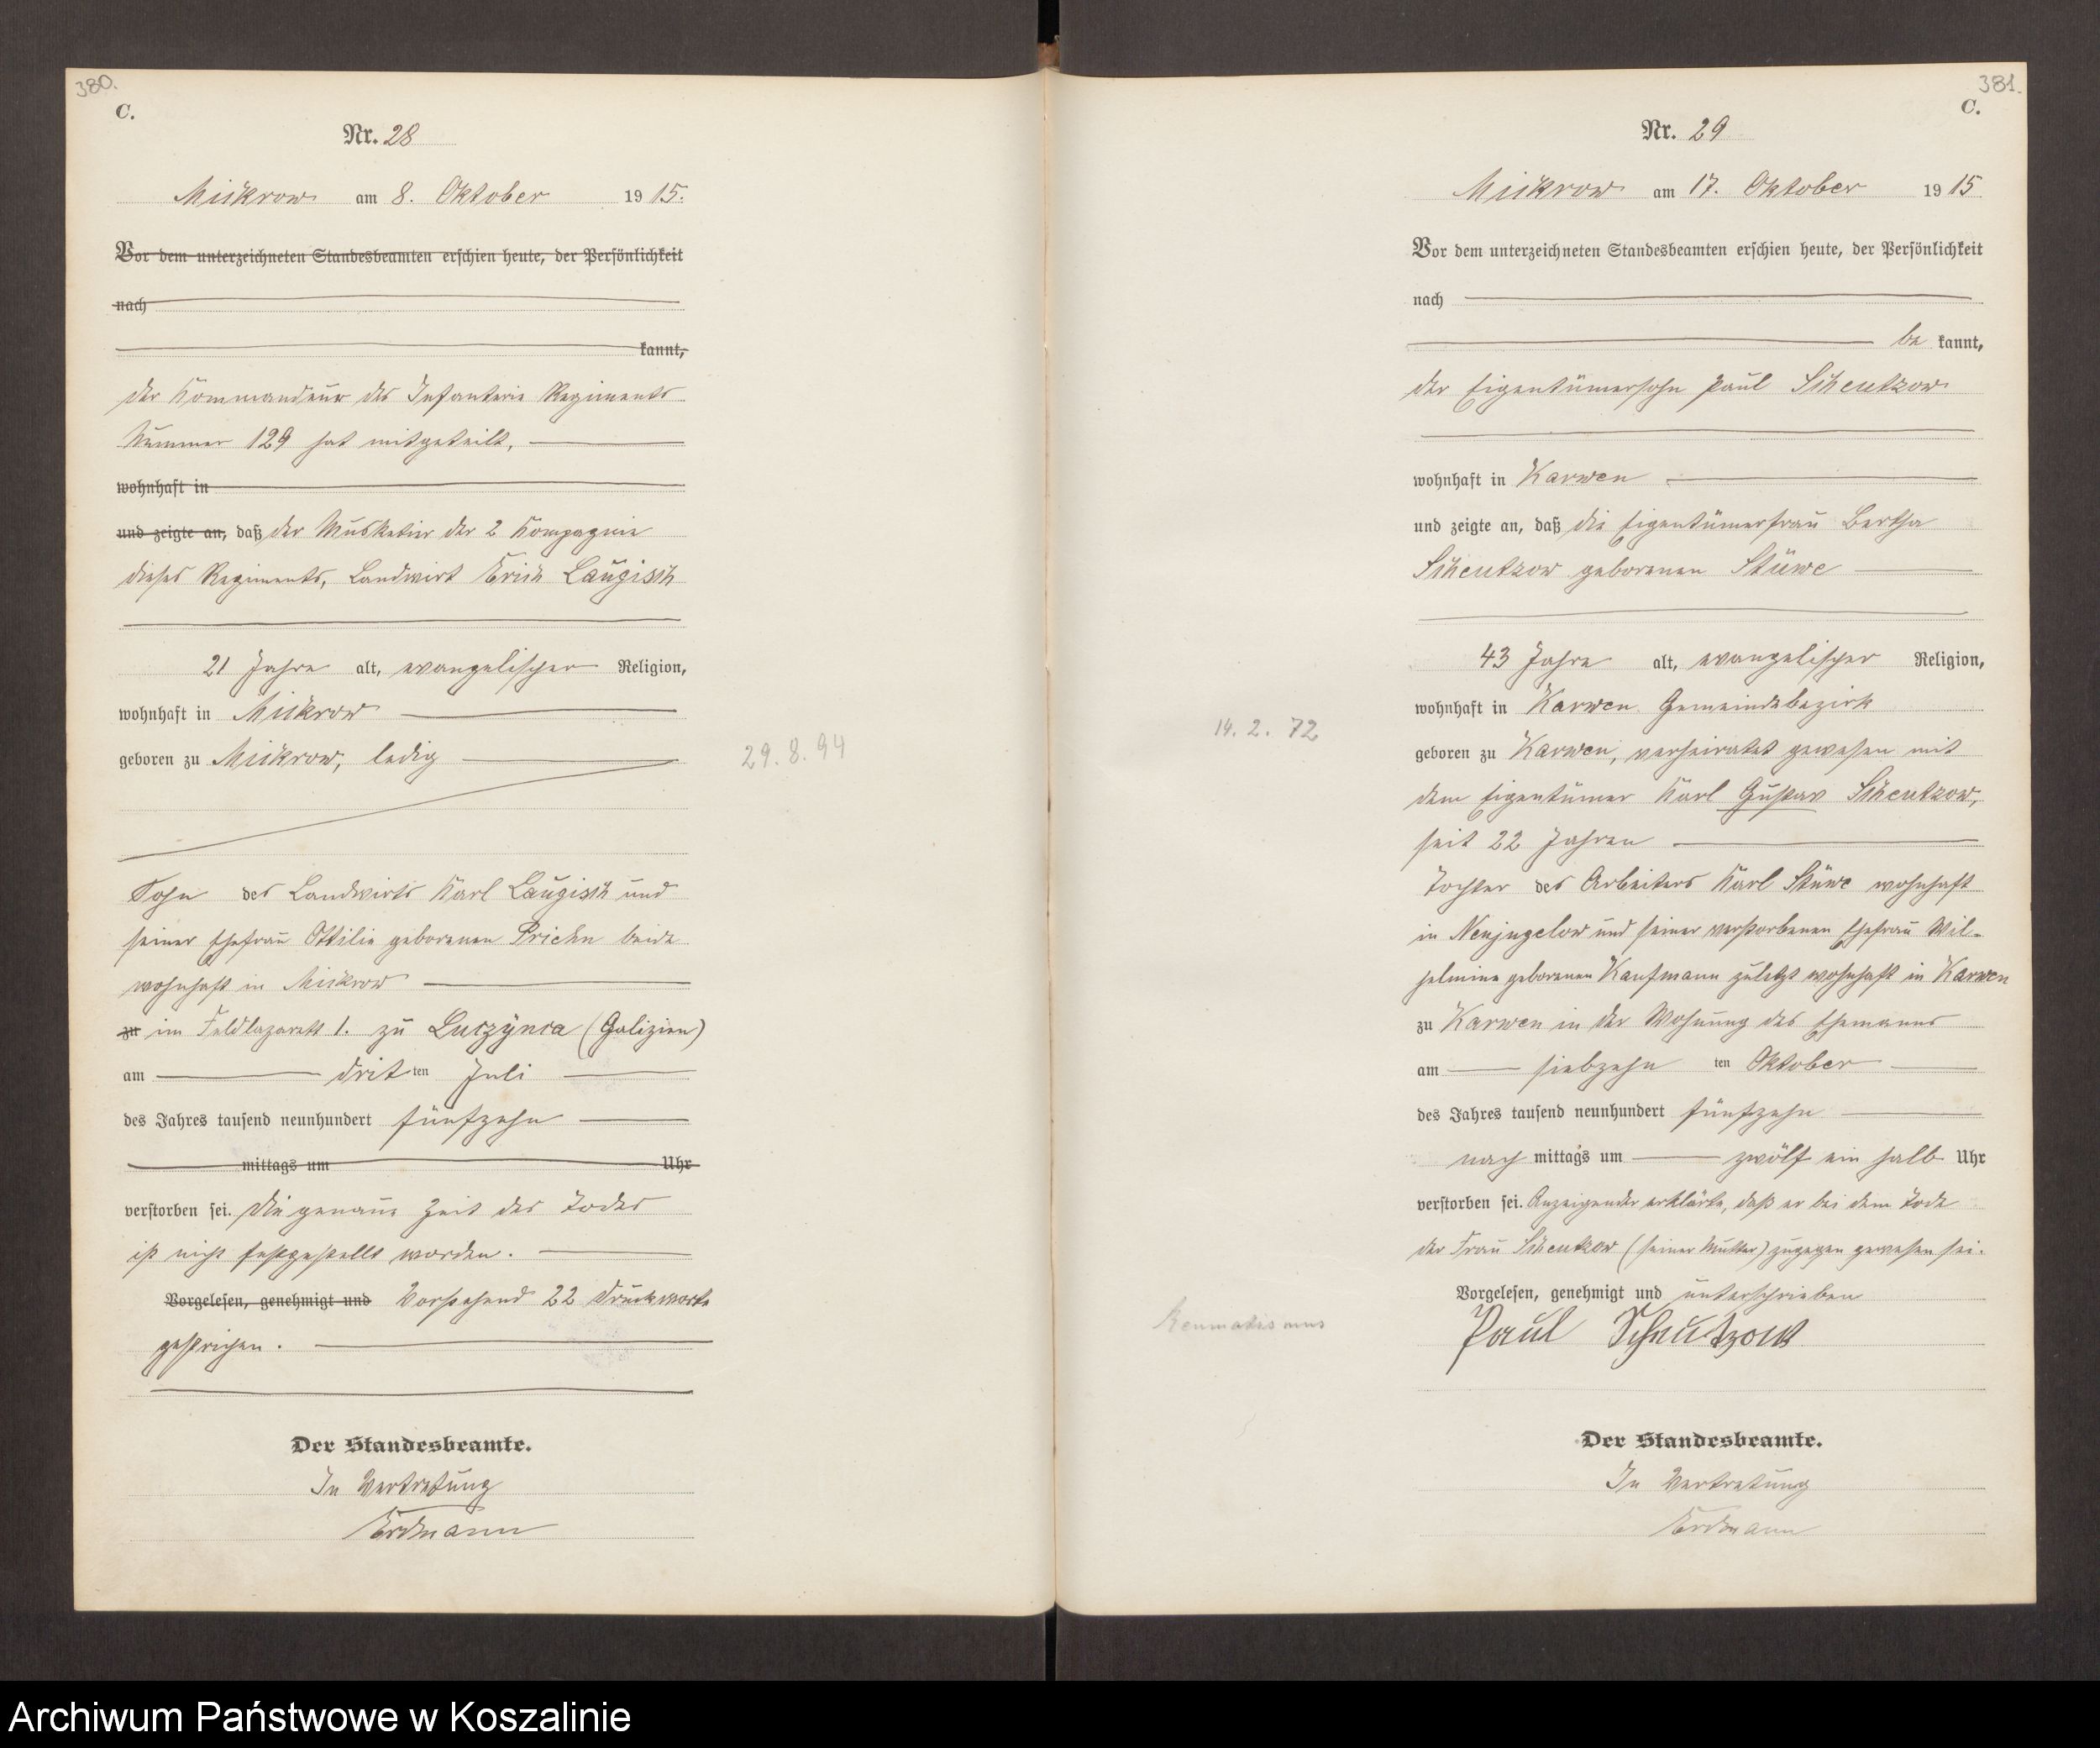 380.
C.
Nr. 28
Mickrow am 8. Oktober 1915.
Vor dem unterzeichneten Standesbeamten erschien heute, der Persönlichkeit
nach
kannt,
der Kommandeur des Infanterie Regiments
Nummer 129 hat mitgeteilt,
wohnhaft in
und zeigte an, daß der Musketier der 2 Kompagnie
dieses Regiments, Landwirt Erich Laugisch
21 Jahre alt, evangelischer Religion,
wohnhaft in Mickrow
geboren zu Mickrow, ledig
29.8.94
Sohn des Landwirts Karl Laugisch und
seiner Ehefrau Ottilie geborenen Priehn beide
wohnhaft in Mickrow
zu im Feldlazarett 1. zu Luczÿnca (Galizien)
am dritten Juli
des Jahres tausend neunhundert fünfzehn
mittags um Uhr
verstorben sei. Die genaue Zeit des Todes
ist nicht festgestellt worden.
Vorgelesen, genehmigt und Vorstehend 22 Druckworte
gestrichen.
Der Standesbeamte.
In Vertretung
Erdmann
381.
C.
Nr. 29
Mickrow am 17. Oktober 1915
Vor dem unterzeichneten Standesbeamten erschien heute, der Persönlichkeit
nach
be kannt,
der Eigentümersohn Paul Scheutzow
wohnhaft in Karwen
und zeigte an, daß die Eigentümerfrau Bertha
Scheutzow geborenen Stüwe
43 Jahre alt, evangelischer Religion,
wohnhaft in Karwen Gemeindebezirk
14. 2. 72
geboren zu Karwen, verheiratet gewesen mit
dem Eigentümer Karl Gustav Scheutzow,
seit 22 Jahren
Tochter des Arbeiters Karl Stüwe wohnhaft
in Neujugelow und seiner verstorbenen Ehefrau Wil-
helmine geborenen Kaufmann zuletzt wohnhaft in Karwen
zu Karwen in der Wohnung des Ehemanns
am siebzehn ten Oktober
des Jahres tausend neunhundert fünfzehn
nach mittags um zwölf ein halb Uhr
verstorben sei. Anzeigender erklärte, daß er bei dem Tode
der Frau Scheutzow (seiner Mutter) zugegen gewesen sei.
Vorgelesen, genehmigt und unterschrieben
Reumatismus
Paul Scheutzow
Der Standesbeamte.
In Vertretung
Erdmann
Archiwum Państwowe w Koszalinie